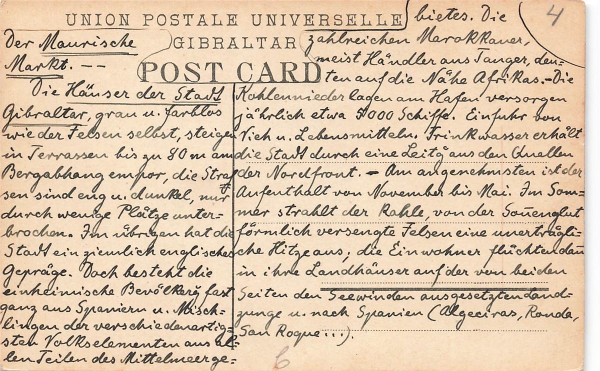 UNION POSTALE UNIVERSELLE
GIBRALTAR
POST CARD
4
Der Maurische
Markt. — —
Die Häuser der Stadt
Gibraltar, grau u. farblos
wie der Felsen selbst, steigen
in Terrassen bis zu 80 m am
Bergabhang empor, die Stra-
ßen sind eng u. dunkel, nur
durch wenige Plätze unter-
brochen. Im übrigen hat die
Stadt ein ziemlich englisches
Gepräge. Doch besteht die
einheimische Bevölkerg fast
ganz aus Spaniern u. Misch-
lingen der verschiedenartig-
sten Volkselementen aus al-
len Teilen des Mittelmeerge-
bietes. Die
zahlreichen Marokkaner,
meist Händler aus Tanger, deu-
ten auf die Nähe Afrikas. - Die
Kohlenniederlagen am Hafen versorgen
jährlich etwa 5000 Schiffe. Einfuhr von
Vieh u. Lebensmitteln. Trinkwasser erhält
die Stadt durch eine Leitg aus den Quellen
der Nordfront. - Am angenehmsten ist der
Aufenthalt von November bis Mai. Im Som-
mer strahlt der Kahle, von der Sonnenglut
förmlich versengte Felsen eine unerträgli-
che Hitze aus, die Einwohner flüchten dann
in ihre Landhäuser auf der von beiden
Seiten den Seewinden ausgesetzten Land-
zunge u. nach Spanien (Algeciras, Ronda,
San Roque...).